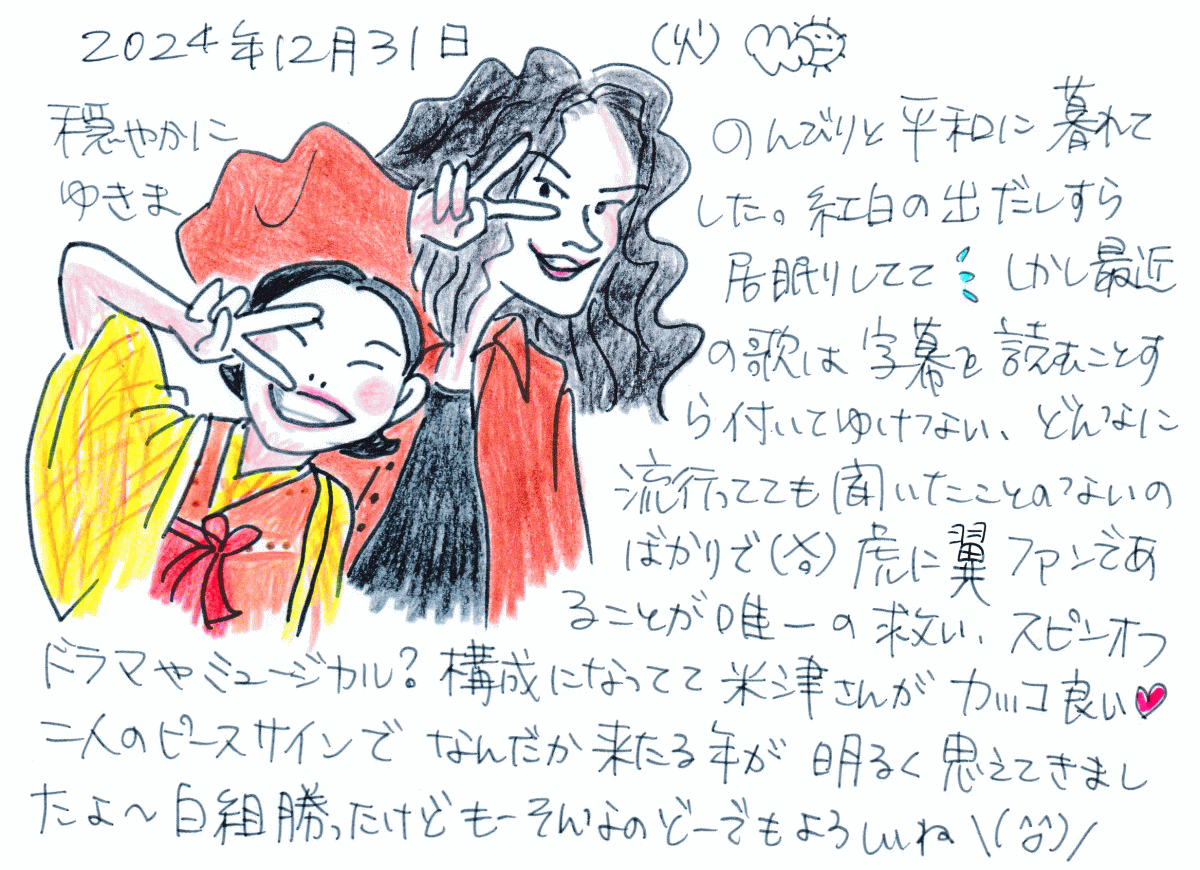 2024年12月31日 (火)
穏やかに
ゆきま
のんびりと平和に暮れて
した。紅白の出だしすら
居眠りしてて しかし最近
の歌は字幕を読むことす
ら付いてゆけない、どんなに
流行ってても聞いたことのないの
ばかりで(×。×) 虎に翼ファンであ
ることが唯一の救い、スピンオフ
ドラマやミュージカル?構成になってて米津さんがカッコ良い♥
二人のピースサインでなんだか来たる年が明るく思えてきまし
たよ〜白組勝ったけどもーそんなのどーでもよろしいね\(^o^)/